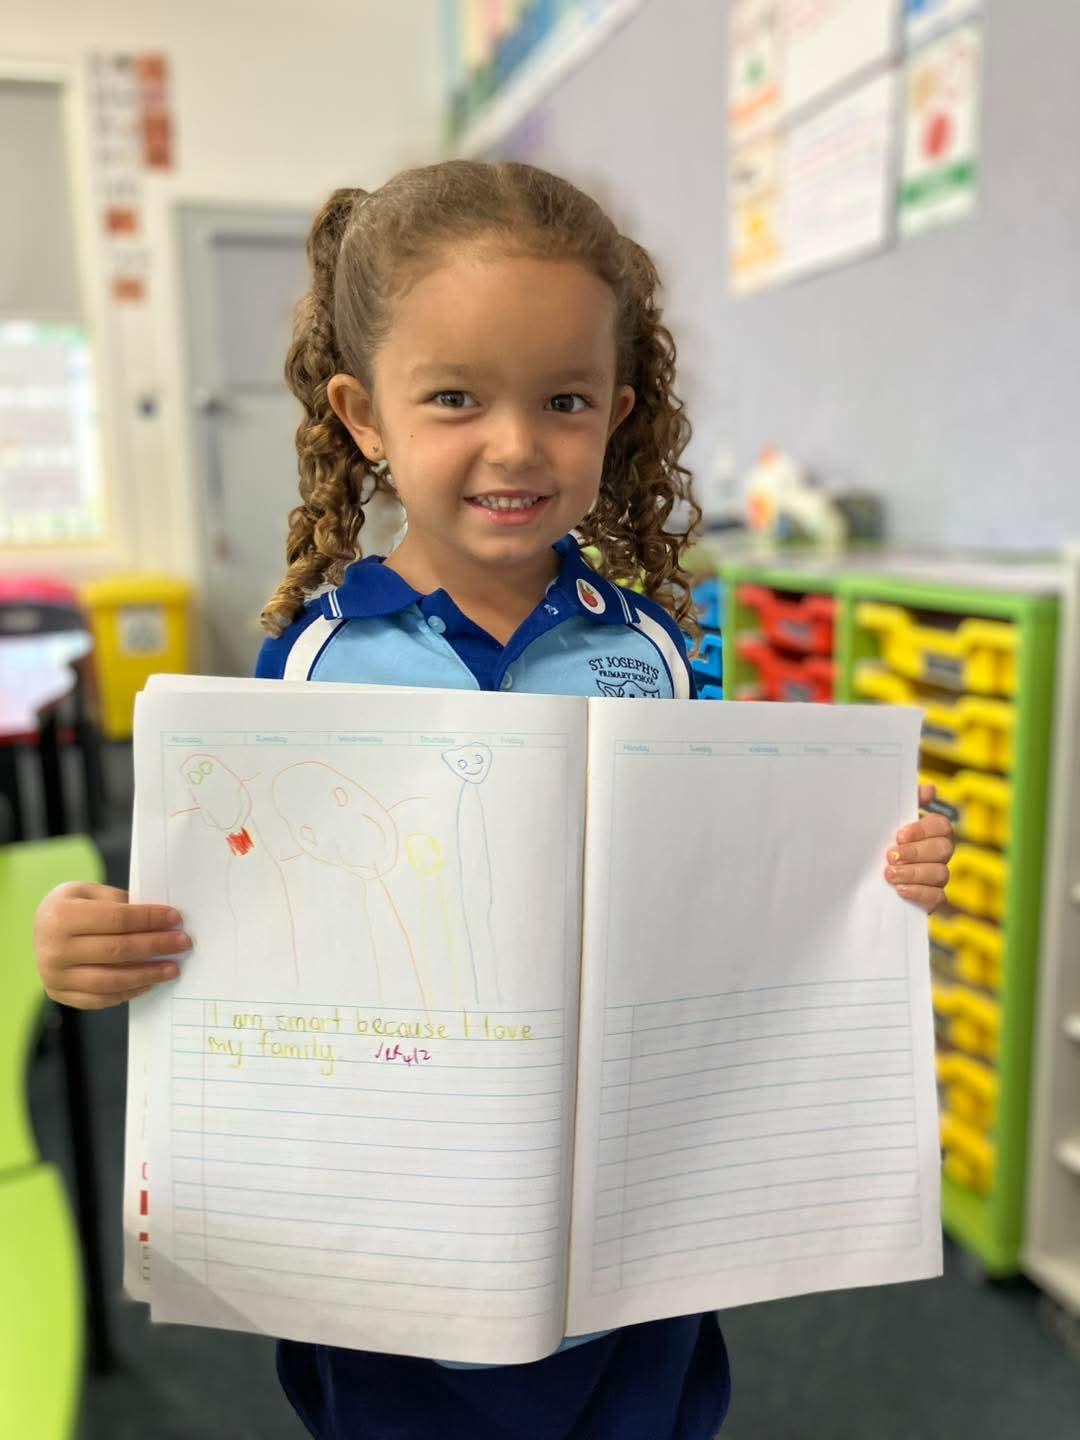 ST JOSEPH'S
PRIMARY SCHOOL
Monday Tuesday Wednesday Thursday Friday
Monday Tuesday Wednesday Thursday Friday
I am smart because I love
my family.